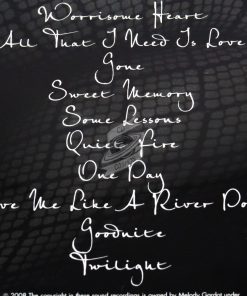 Worrisome Heart
All That I Need Is Love
Gone
Sweet Memory
Some Lessons
Quiet Fire
One Day
ve Me Like A River Do
Goodnite
Twilight
© 2008 The copyright in these sound recordings is owned by Melody Gardot under